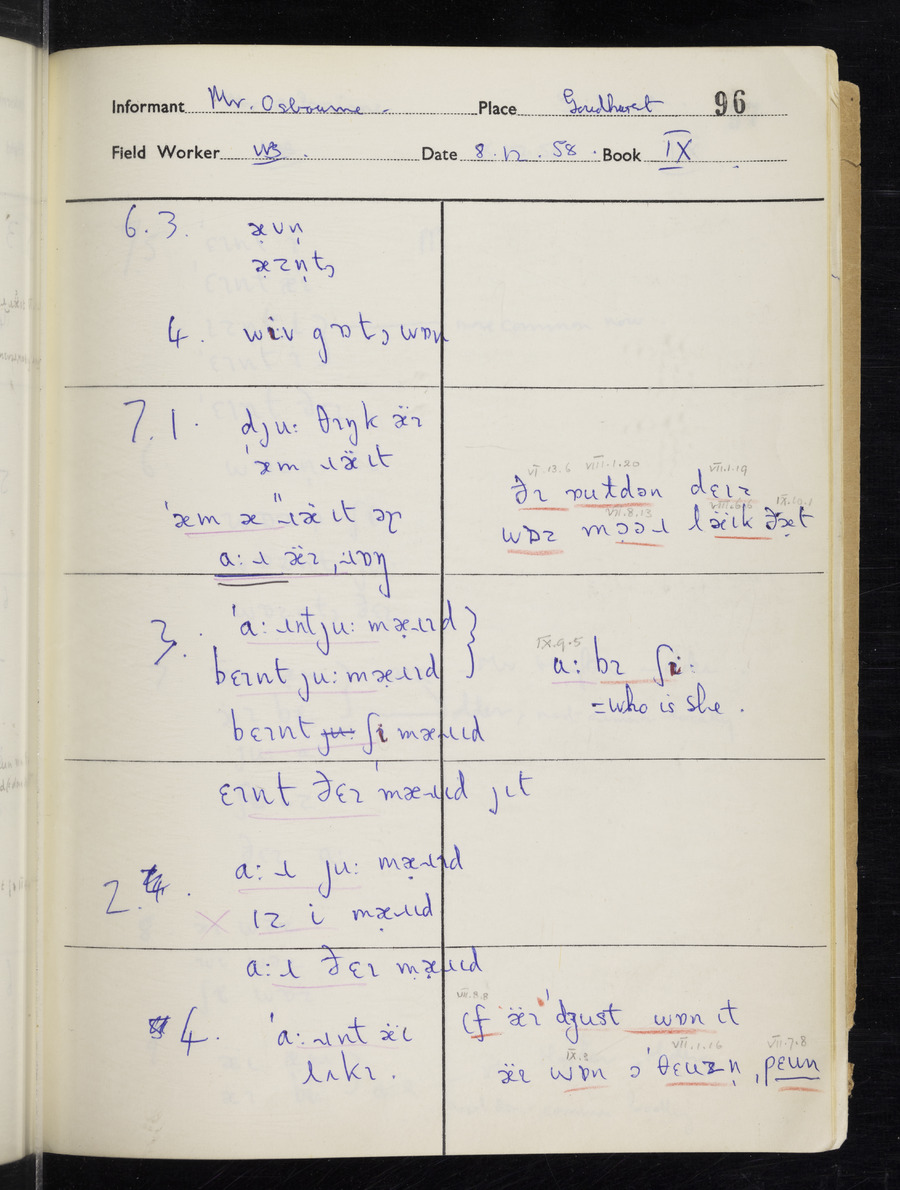 Informant Mr. Osbourne. Place Goudhurst 96
Field Worker WB. Date 8.12.58. Book IX
6.3. æ̣vn̩
æ̣zn̩t
4. wiv gɒt wɒn
7.1. dju: θɪŋk äɪ
ˈæm ɹäɪt
ˈæm æ ɹäɪt əɾ
a:ɹ äɪ ˌɹɒŋ
VI.13.6 VIII.1.20 VII.1.19
ðɪ ɒutdən dɛɪz
VII.8.13 VIII.6.6 IX.10.1
wɒz mɔɔɹ läɪk ðæt
3. ˈa:ɹntju: mæ̣ɹɪd }
bɛɪnt ju: mæ̣ɹɪd
bɛɪnt ʃi mæɹɪd
IX.9.5
u: bɪ ʃi:
=who is she.
ɛɪnt ðɛɪ ˈmæɹɪd jɪt
2. a:ɹ ju: mæ̣ɹɪd
× ɪz i mæ̣ɹɪd
a:ɹ ðɛɪ mæ̣ɹɪd
4. ˈa:ɹnt äɪ
lʌkɪ.
VII.8.8
ɪf äɪ ˈdʒust wɒn ɪt
IX.3 VII.1.16 VII.7.8
äɪ wɒn ə ˈθɛuzn̩ ˌpɛun